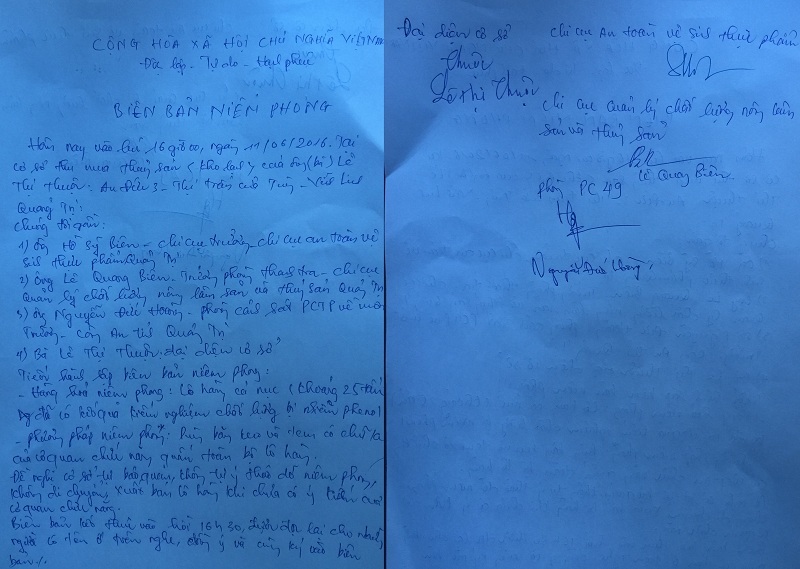 CỘNG HÒA XÃ HỘI CHỦ NGHĨA VIỆT NAM
Độc lập - Tự do - Hạnh phúc
BIÊN BẢN NIÊM PHONG
Hôm nay vào lúc 16 giờ 00, ngày 11/06/2016. Tại
cơ sở thu mua thủy sản (kho lạnh) của ông (bà) Lê
Thị Thuộc: An Đức 3 - Thị trấn Cửa Tùng - Vĩnh Linh
Quảng Trị:
Chúng tôi gồm:
1) ông Hồ Sỹ Biên - chi cục trưởng - chi cục an toàn vệ
sinh thực phẩm Quảng Trị
2) ông Lê Quang Biên - Trưởng phòng thanh tra - chi cục
Quản lý chất lượng nông lâm sản và thủy sản Quảng Trị
3) ông Nguyễn Đức Hoàng - phòng cảnh sát PCTP về môi
Trường - Công An tỉnh Quảng Trị
4) Bà Lê Thị Thuộc: đại diện cơ sở
Tiến hành lập biên bản niêm phong:
- Hàng hóa niêm phong: Lô hàng cá nục (khoảng 25 tấn
đã có kết quả kiểm nghiệm chất lượng bị nhiễm phenol
- phương pháp niêm phong: bằng keo và tem có chữ ký
của cơ quan chức năng quấn toàn bộ lô hàng.
Đề nghị cơ sở tự bảo quản, không tự ý tháo dỡ niêm phong,
không di chuyển, xuất bán lô hàng khi chưa có ý kiến của
cơ quan chức năng.
Biên bản kết thúc vào hồi 16h30, được đọc lại cho những
người có tên ở trên nghe, đồng ý và cùng ký vào biên
bản./.
Đại diện cơ sở
Thuộc
Lê Thị Thuộc
chi cục An toàn vệ sinh thực phẩm
chi cục quản lý chất lượng nông lâm
sản và thủy sản
Lê Quang Biên
phòng PC 49
Nguyễn Đức Hoàng